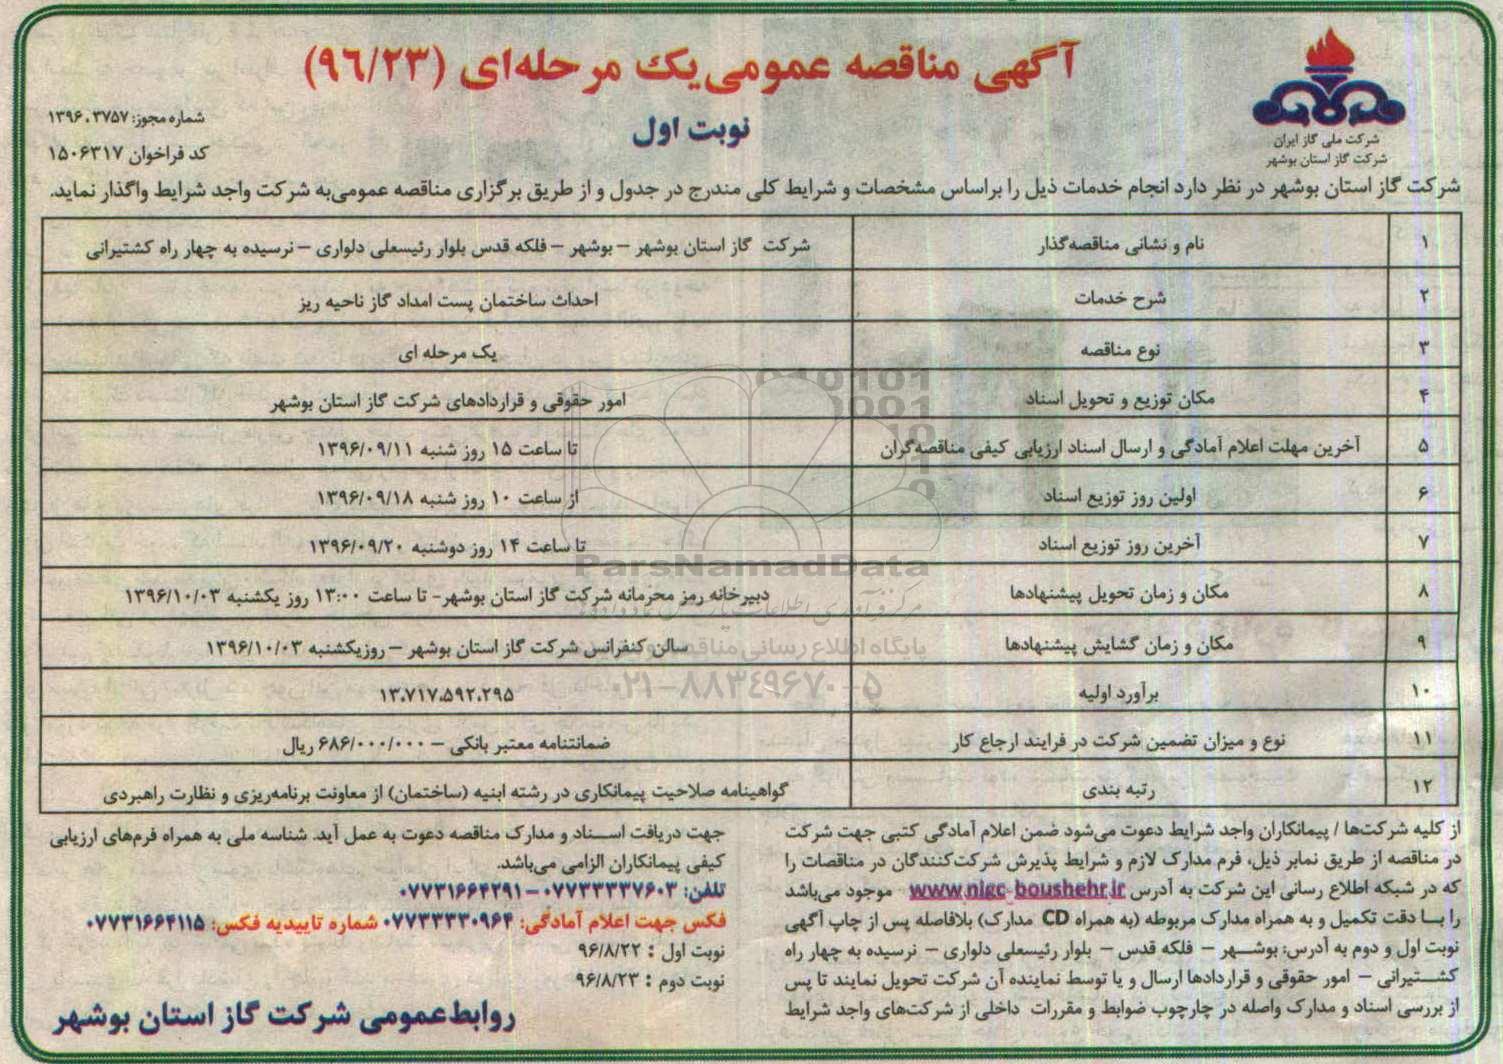 آگهی مناقصه عمومی یک مرحله‌ای (۹۶/۲۳)
نوبت اول
شماره مجوز: ۱۳۹۶.۳۷۵۷
کد فراخوان ۱۵۰۶۳۱۷
شرکت ملی گاز ایران
شرکت گاز استان بوشهر
شرکت گاز استان بوشهر در نظر دارد انجام خدمات ذیل را براساس مشخصات و شرایط کلی مندرج در جدول و از طریق برگزاری مناقصه عمومی‌به شرکت واجد شرایط واگذار نماید.
۱ نام و نشانی مناقصه‌گذار شرکت گاز استان بوشهر – بوشهر – فلکه قدس بلوار رئیسعلی دلواری – نرسیده به چهار راه کشتیرانی
۲ شرح خدمات احداث ساختمان پست امداد گاز ناحیه ریز
۳ نوع مناقصه یک مرحله ای
۴ مکان توزیع و تحویل اسناد امور حقوقی و قراردادهای شرکت گاز استان بوشهر
۵ آخرین مهلت اعلام آمادگی و ارسال اسناد ارزیابی کیفی مناقصه‌گران تا ساعت ۱۵ روز شنبه ۱۳۹۶/۰۹/۱۱
۶ اولین روز توزیع اسناد از ساعت ۱۰ روز شنبه ۱۳۹۶/۰۹/۱۸
۷ آخرین روز توزیع اسناد تا ساعت ۱۴ روز دوشنبه ۱۳۹۶/۰۹/۲۰
۸ مکان و زمان تحویل پیشنهادها دبیرخانه رمز محرمانه شرکت گاز استان بوشهر- تا ساعت ۱۳:۰۰ روز یکشنبه ۱۳۹۶/۱۰/۰۳
۹ مکان و زمان گشایش پیشنهادها سالن کنفرانس شرکت گاز استان بوشهر – روزیکشنبه ۱۳۹۶/۱۰/۰۳
۱۰ برآورد اولیه ۱۳.۷۱۷.۵۹۲.۲۹۵
۱۱ نوع و میزان تضمین شرکت در فرایند ارجاع کار ضمانتنامه معتبر بانکی – ۶۸۶/۰۰۰/۰۰۰ ریال
۱۲ رتبه بندی گواهینامه صلاحیت پیمانکاری در رشته ابنیه (ساختمان) از معاونت برنامه‌ریزی و نظارت راهبردی
از کلیه شرکت‌ها / پیمانکاران واجد شرایط دعوت می‌شود ضمن اعلام آمادگی کتبی جهت شرکت
در مناقصه از طریق نمابر ذیل، فرم مدارک لازم و شرایط پذیرش شرکت‌کنندگان در مناقصات را
که در شبکه اطلاع رسانی این شرکت به آدرس www.nigc_boushehr.ir موجود می‌باشد
را بـا دقت تکمیل و به همراه مدارک مربوطه (به همراه CD مدارک) بلافاصله پس از چاپ آگهی
نوبت اول و دوم به آدرس: بوشـهر – فلکه قدس – بلوار رئیسعلی دلواری – نرسیده به چهار راه
کشـتیرانی – امور حقوقی و قراردادها ارسال و یا توسط نماینده آن شرکت تحویل نمایند تا پس
از بررسی اسناد و مدارک واصله در چارچوب ضوابط و مقررات داخلی از شرکت‌های واجد شرایط
جهت دریافت اسـناد و مدارک مناقصه دعوت به عمل آید. شناسه ملی به همراه فرم‌های ارزیابی
کیفی پیمانکاران الزامی می‌باشد.
تلفن: ۰۷۷۳۳۳۳۷۶۰۳ – ۰۷۷۳۱۶۶۴۲۹۱
فکس جهت اعلام آمادگی: ۰۷۷۳۳۳۳۰۹۶۴ شماره تاییدیه فکس: ۰۷۷۳۱۶۶۴۱۱۵
نوبت اول : ۹۶/۸/۲۲
نوبت دوم : ۹۶/۸/۲۳
روابط‌عمومی شرکت گاز استان بوشهر
ParsNamadData
پایگاه اطلاع رسانی مناقصه
۰۲۱-۸۸۳۴۹۶۷۰-۵